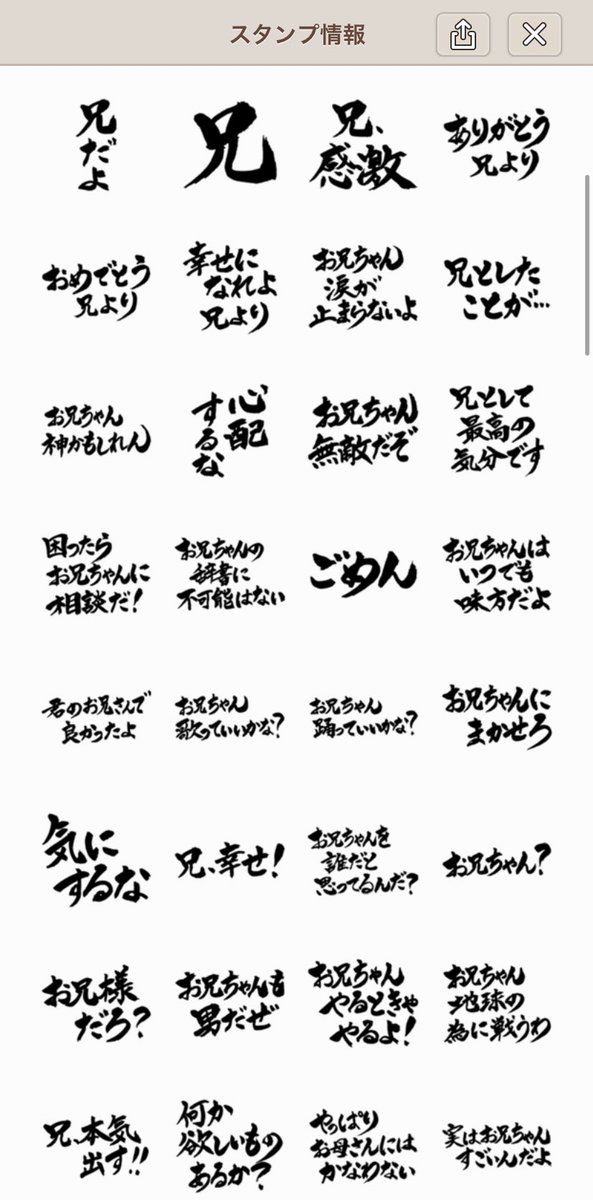 スタンプ情報
兄だよ
兄
兄、
感激
ありがとう
兄より
おめでとう
兄より
幸せに
なれよ
兄より
お兄ちゃん
涙が
止まらないよ
兄とした
ことが…
お兄ちゃん
神かもしれん
心配
するな
お兄ちゃん
無敵だぞ
兄として
最高の
気分です
困ったら
お兄ちゃんに
相談だ!
お兄ちゃんの
辞書に
不可能はない
ごめん
お兄ちゃんは
いつでも
味方だよ
君のお兄さんで
良かったよ
お兄ちゃん
歌っていいかな?
お兄ちゃん
踊っていいかな?
お兄ちゃんに
まかせろ
気に
するな
兄、幸せ!
お兄ちゃんを
誰だと
思ってるんだ?
お兄ちゃん?
お兄様
だろ?
お兄ちゃんも
男だぜ
お兄ちゃん
やるときゃ
やるよ!
お兄ちゃん
地球の
為に戦うわ
兄、本気
出す!!
何か
欲しいもの
あるか?
やっぱり
お母さんには
かなわない
実はお兄ちゃん
すごいんだよ